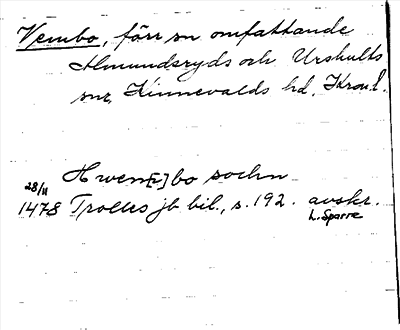 Vembo, förr sn omfattande
Almundsryds och Urshults
snr, Kinnevalds hd, Kron. l.
Hwem[e]bo sochn
28/11
1478 Trolles jb bil., s. 192. avskr.
L. Sparre